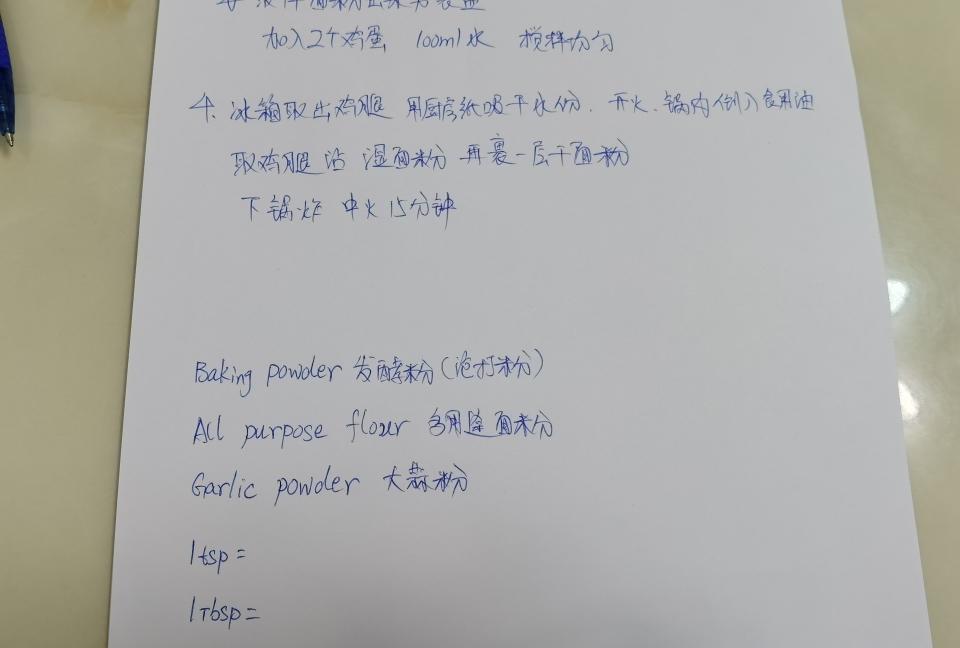 加入2个鸡蛋 100ml水 搅拌均匀
4、冰箱取出鸡腿 用厨房纸吸干水份、开火、锅内倒入食用油
取鸡腿沾 湿面粉 再裹一层干面粉
下锅炸 中火15分钟
Baking powder 发酵粉(泡打粉)
All purpose flour 多用途面粉
Garlic powder 大蒜粉
1tsp=
1Tbsp=